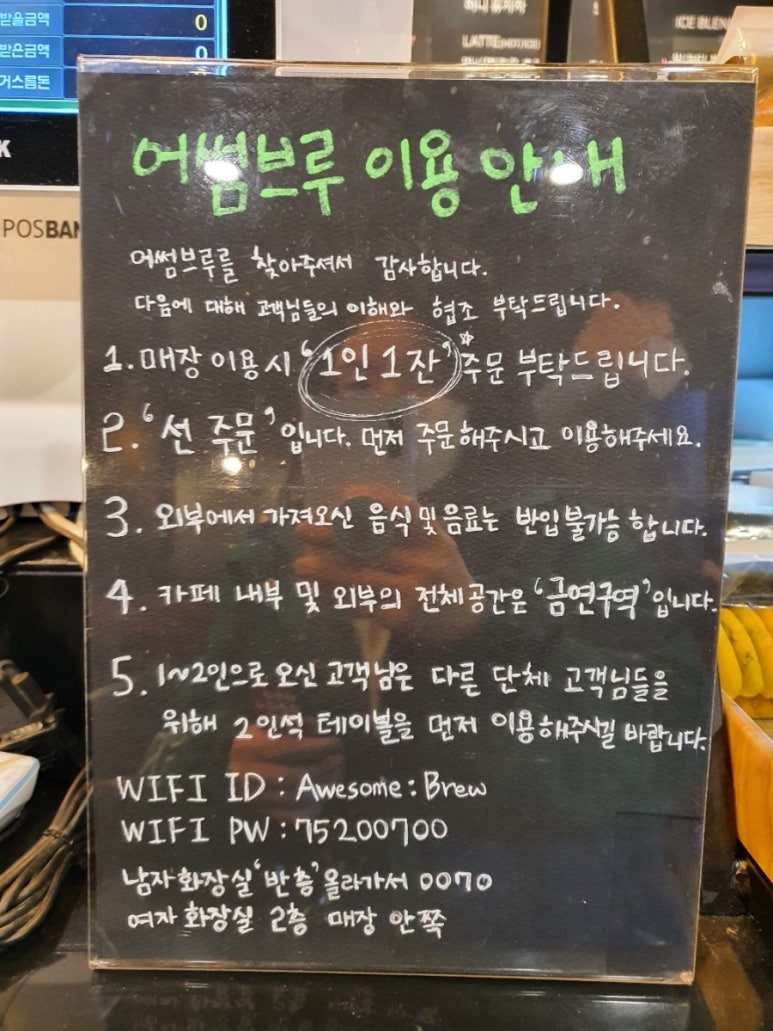 받을금액 0
받은금액 0
거스름돈
POSBAN
LATTE(HOT/ICE)
ICE BLEN
어썸브루 이용 안내
어썸브루를 찾아주셔서 감사합니다.
다음에 대해 고객님들의 이해와 협조 부탁드립니다.
1. 매장 이용시 '1인 1잔' 주문 부탁드립니다.
2. '선 주문' 입니다. 먼저 주문해주시고 이용해주세요.
3. 외부에서 가져오신 음식 및 음료는 반입불가능 합니다.
4. 카페 내부 및 외부의 전체공간은 '금연구역'입니다.
5. 1~2인으로 오신 고객님은 다른 단체 고객님들을
위해 2인석 테이블을 먼저 이용해주시길 바랍니다.
WIFI ID : Awesome:Brew
WIFI PW : 75200700
남자화장실 '반층' 올라가서 0070
여자화장실 2층 매장 안쪽